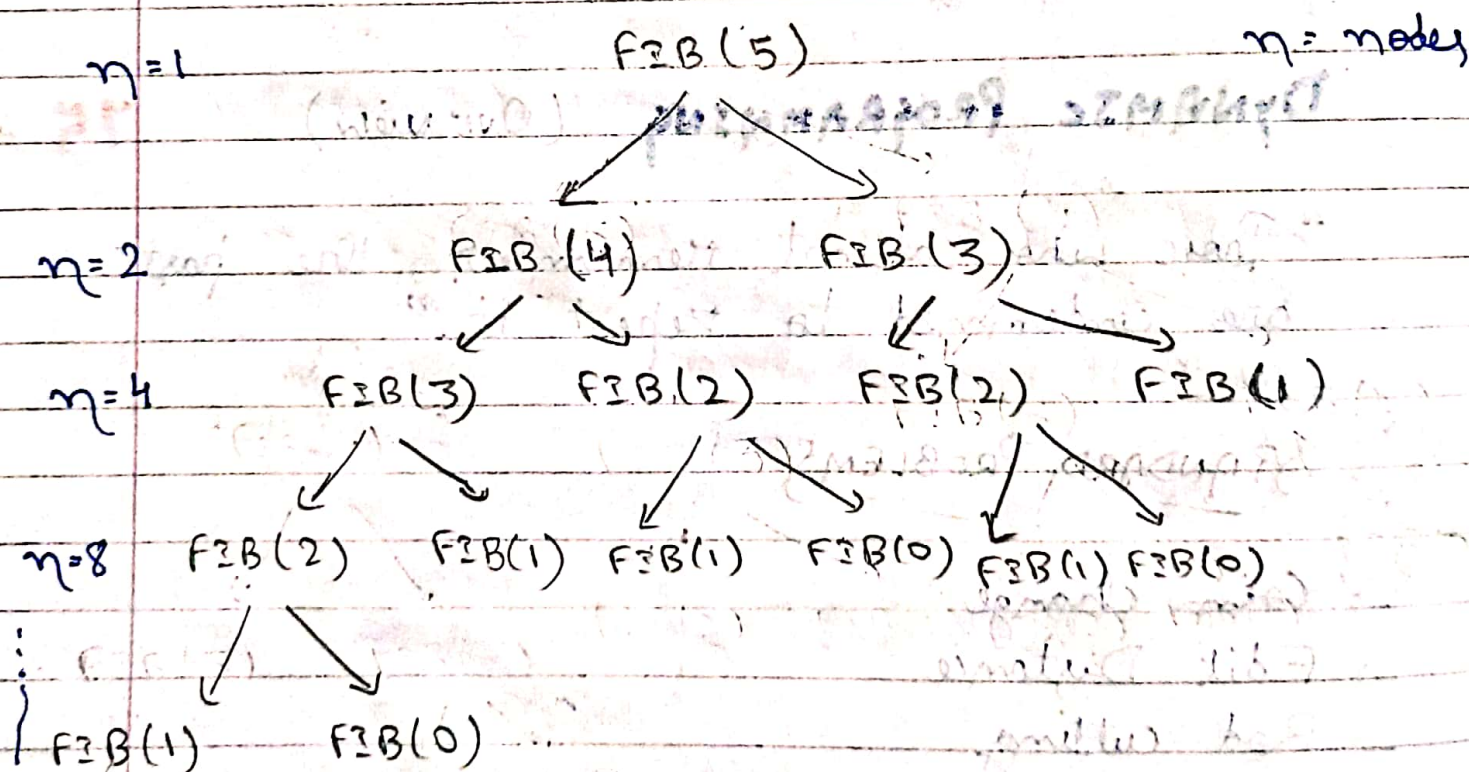 n=1 FIB(5) n = nodes
n=2 FIB(4) FIB(3)
n=4 FIB(3) FIB(2) FIB(2) FIB(1)
n=8 FIB(2) FIB(1) FIB(1) FIB(0) FIB(1) FIB(0)
FIB(1) FIB(0)